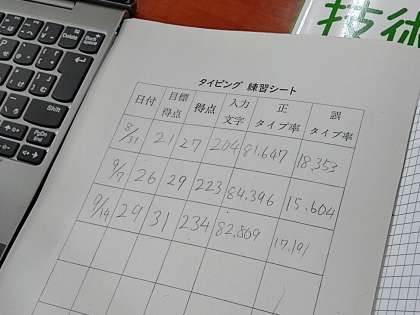 技術
タイピング 練習シート
日付 目標得点 得点 入力文字 正タイプ率 誤タイプ率
8/31 21 27 204 81.647 18.353
9/7 26 29 223 84.396 15.604
9/14 29 31 234 82.809 17.191
Delete
Backspace
Enter
Shift
PgUp
PgDn
End